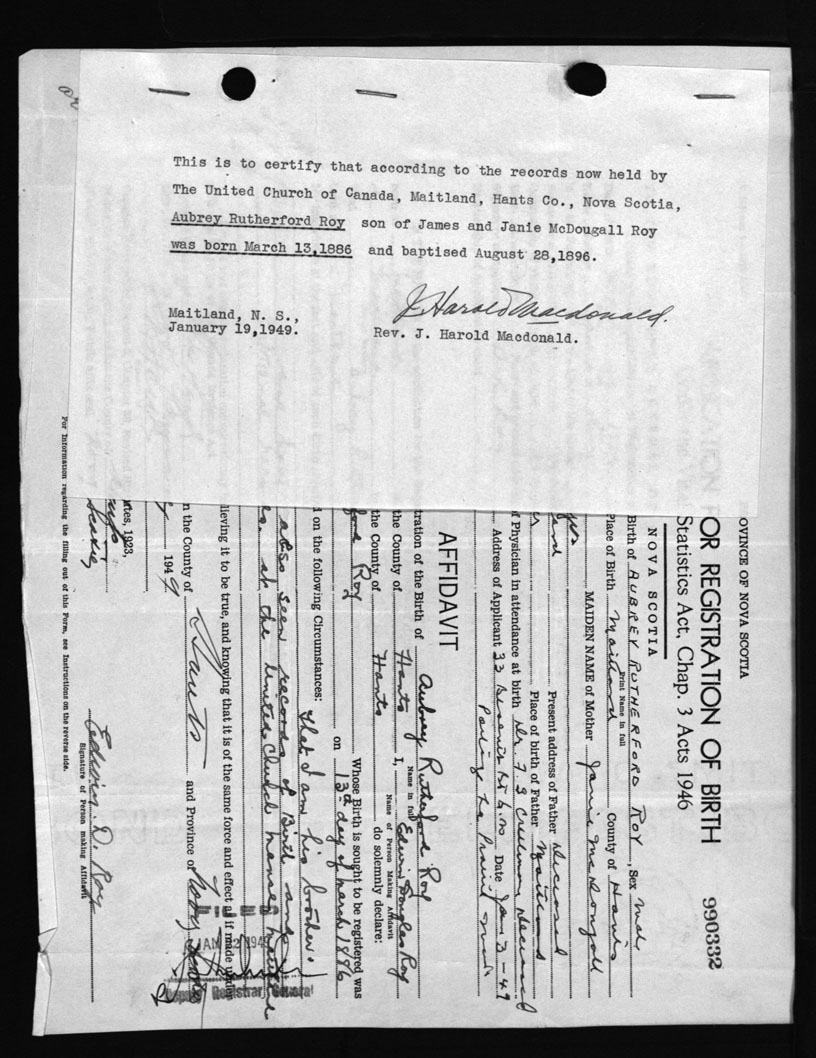 This is to certify that according to the records now held by
The United Church of Canada, Maitland, Hants Co., Nova Scotia,
Aubrey Rutherford Roy son of James and Janie McDougall Roy
was born March 13,1886 and baptised August 28,1896.
J. Harold Macdonald.
Maitland, N. S.,
January 19,1949.
Rev. J. Harold Macdonald.
OVINCE OF NOVA SCOTIA
OR REGISTRATION OF BIRTH 990332
Statistics Act, Chap. 3 Acts 1946
NOVA SCOTIA
Birth of AUBREY RUTHERFORD ROY, Sex Male
Print Name in full
Place of Birth Maitland County of Hants
MAIDEN NAME of Mother Janie McDougall
Present address of Father deceased
Place of birth of Father Maitland
f Physician in attendance at birth Dr. deceased
Address of Applicant 33 Date Jan 3 - 49
AFFIDAVIT
tration of the Birth of Aubrey Rutherford Roy
Name in full
the County of Hants I, Edwin Douglas Roy
Name of Person Making Affidavit
the County of Hants do solemnly declare:
Roy Whose Birth is sought to be registered was
on 13th day of March 1886
d on the following Circumstances: That I am his brother.
also seen records of Birth
at the United Church manse,
lieving it to be true, and knowing that it is of the same force and effect as if made under
n the County of Hants and Province of Nova Scotia
1949
utes, 1923,
Scotia
Edwin. D. Roy
Signature of Person making Affidavit
For Information regarding the filling out of this Form, see Instructions on the reverse side.
FILED
JAN 22 1949
Deputy Registrar General